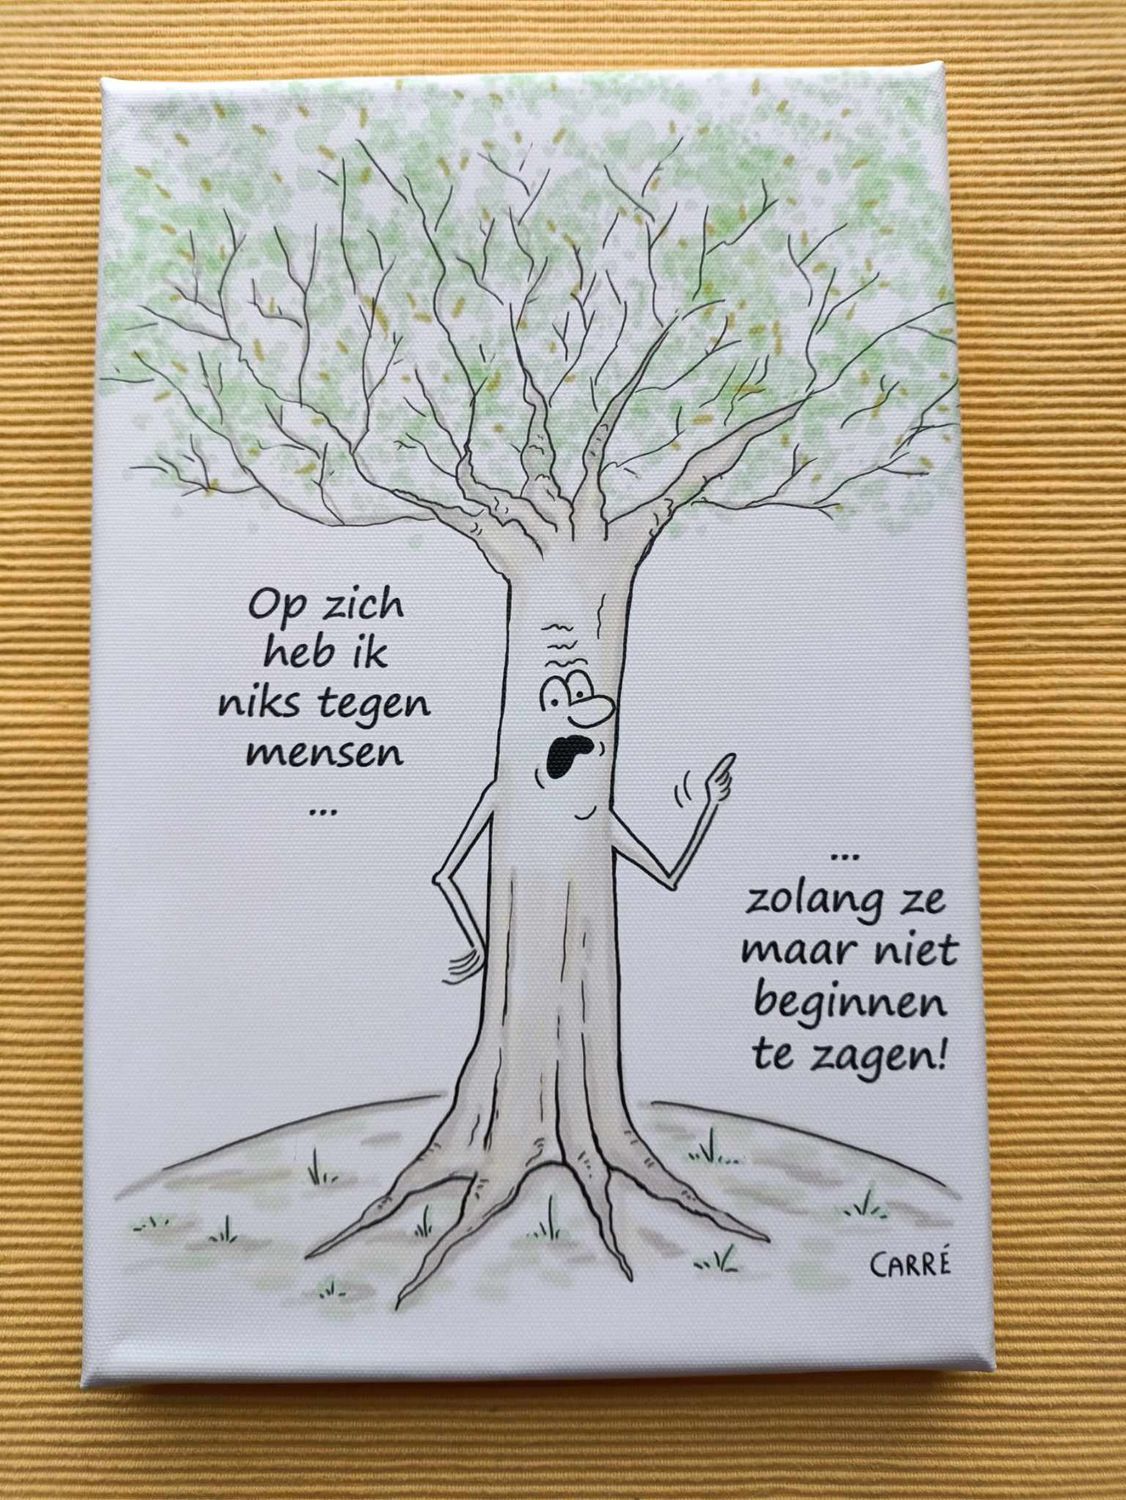 Op zich
heb ik
niks tegen
mensen
...
...
zolang ze
maar niet
beginnen
te zagen!
CARRÉ